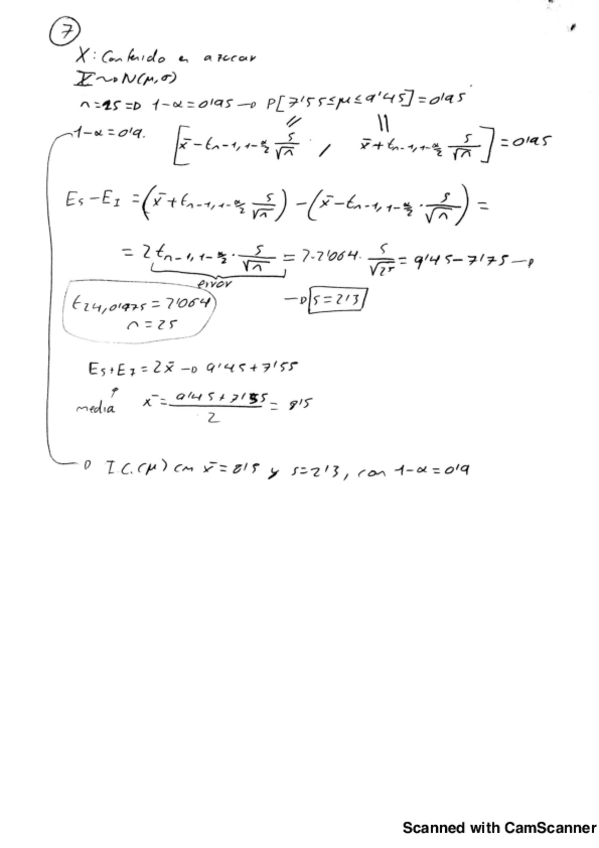 7
X: Contenido en azucar
X ~> N(μ,σ)
n=25 => 1-α=0'95 -> P[7'55≤μ≤9'45]=0'95
1-α=0'9. [x̄-t n-1, 1-α/2 s/√n , x̄+t n-1, 1-α/2 s/√n]=0'95
Es-EI =(x̄+t n-1, 1-α/2 s/√n) - (x̄-t n-1, 1-α/2 · s/√n) =
= 2 t n-1, 1-α/2 · s/√n = 2·2'064 · s/√25 = 9'45-7'75 ->
error
t 24, 0'975 = 2'064 -> s=2'3
n=25
Es+EI = 2x̄ -> 9'45+7'55
media x̄ = 9'45+7'55/2 = 8'5
-> I.C.(μ) con x̄=8'5 y s=2'3, con 1-α=0'9
Scanned with CamScanner